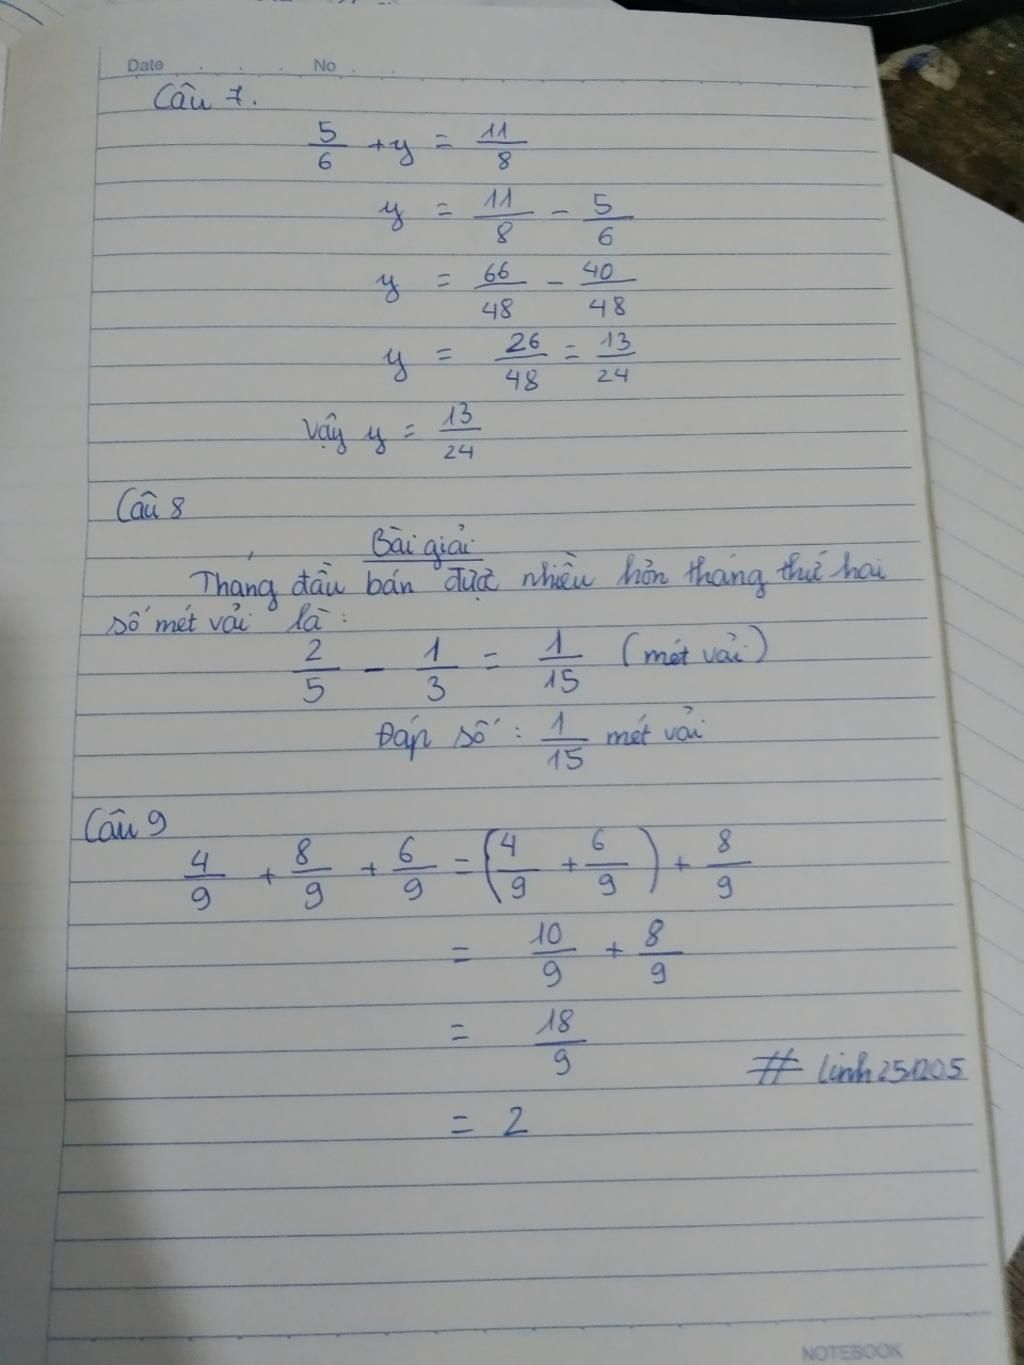 Date No
Câu 7.
5/6 + y = 11/8
y = 11/8 - 5/6
y = 66/48 - 40/48
y = 26/48 = 13/24
Vậy y = 13/24
Câu 8
Bài giải
Tháng đầu bán được nhiều hơn tháng thứ hai
số mét vải là:
2/5 - 1/3 = 1/15 (mét vải)
Đáp số: 1/15 mét vải
Câu 9
4/9 + 8/9 + 6/9 = (4/9 + 6/9) + 8/9
= 10/9 + 8/9
= 18/9
# linh251205
= 2
NOTEBOOK